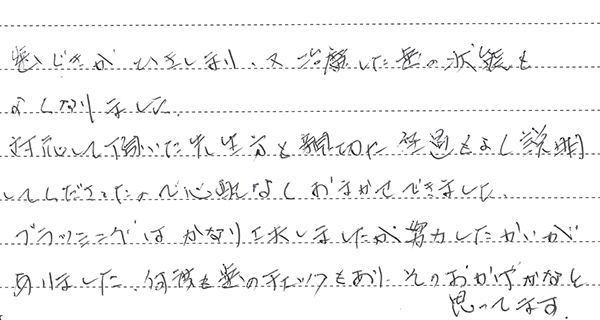 歯ぐきがひきしまり、又治療した歯の状態も
よくなりました。
対応して頂いた先生方も親切に経過もよく説明
してくださったので心配なくおまかせできました。
ブラッシングはかなり工夫しましたが努力したかいが
ありました。何度も歯のチェックもあり そのおかげかなと
思ってます。